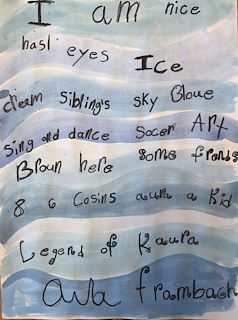 I am nice
hasl eyes Ice
cream Sibling's sky Bloue
Sing and dance Socer Art
Broun here some frands
8 6 Cosins aura a Kid
Legend of Kaura
Ava frambach